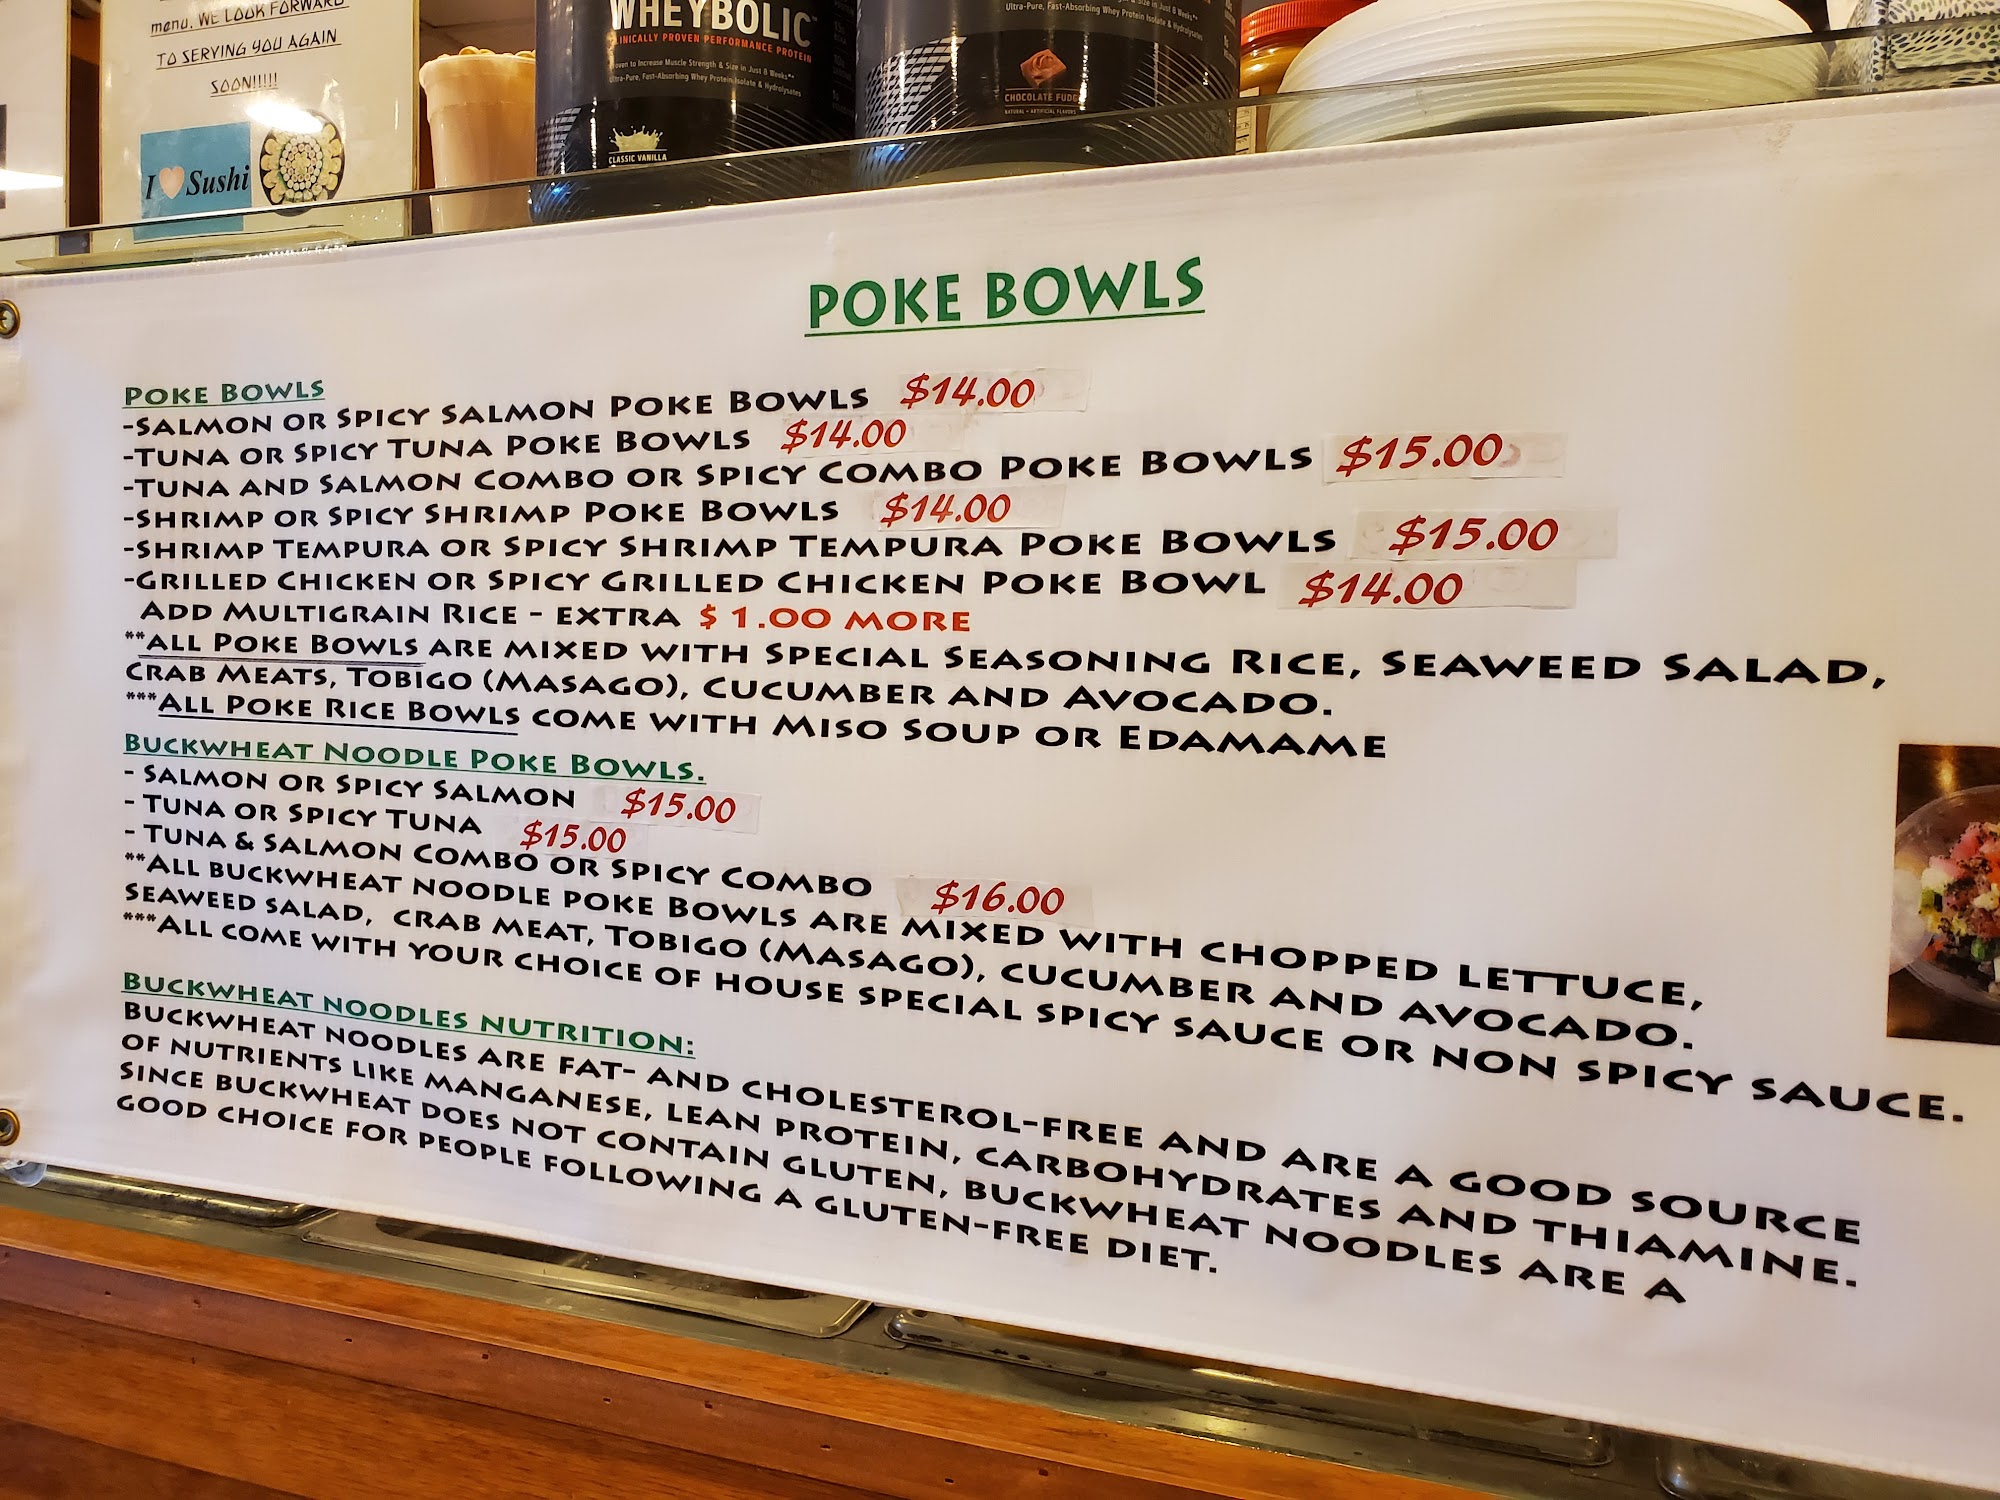 menu. WE LOOK FORWARD
TO SERVING YOU AGAIN
SOON!!!!!
I Sushi
WHEYBOLIC™
CLINICALLY PROVEN PERFORMANCE PROTEIN
Proven to Increase Muscle Strength & Size in Just 8 Weeks*^
Ultra-Pure, Fast-Absorbing Whey Protein Isolate & Hydrolysates
CLASSIC VANILLA
Ultra-Pure, Fast-Absorbing Whey Protein Isolate & Hydrolysates
CHOCOLATE FUDGE
NATURAL + ARTIFICIAL FLAVORS
POKE BOWLS
POKE BOWLS
-SALMON OR SPICY SALMON POKE BOWLS $14.00
-TUNA OR SPICY TUNA POKE BOWLS $14.00
-TUNA AND SALMON COMBO OR SPICY COMBO POKE BOWLS $15.00
-SHRIMP OR SPICY SHRIMP POKE BOWLS $14.00
-SHRIMP TEMPURA OR SPICY SHRIMP TEMPURA POKE BOWLS $15.00
-GRILLED CHICKEN OR SPICY GRILLED CHICKEN POKE BOWL $14.00
ADD MULTIGRAIN RICE - EXTRA $ 1.00 MORE
**ALL POKE BOWLS ARE MIXED WITH SPECIAL SEASONING RICE, SEAWEED SALAD,
CRAB MEATS, TOBIGO (MASAGO), CUCUMBER AND AVOCADO.
***ALL POKE RICE BOWLS COME WITH MISO SOUP OR EDAMAME
BUCKWHEAT NOODLE POKE BOWLS.
- SALMON OR SPICY SALMON $15.00
- TUNA OR SPICY TUNA $15.00
- TUNA & SALMON COMBO OR SPICY COMBO $16.00
**ALL BUCKWHEAT NOODLE POKE BOWLS ARE MIXED WITH CHOPPED LETTUCE,
SEAWEED SALAD, CRAB MEAT, TOBIGO (MASAGO), CUCUMBER AND AVOCADO.
***ALL COME WITH YOUR CHOICE OF HOUSE SPECIAL SPICY SAUCE OR NON SPICY SAUCE.
BUCKWHEAT NOODLES NUTRITION:
BUCKWHEAT NOODLES ARE FAT- AND CHOLESTEROL-FREE AND ARE A GOOD SOURCE
OF NUTRIENTS LIKE MANGANESE, LEAN PROTEIN, CARBOHYDRATES AND THIAMINE.
SINCE BUCKWHEAT DOES NOT CONTAIN GLUTEN, BUCKWHEAT NOODLES ARE A
GOOD CHOICE FOR PEOPLE FOLLOWING A GLUTEN-FREE DIET.